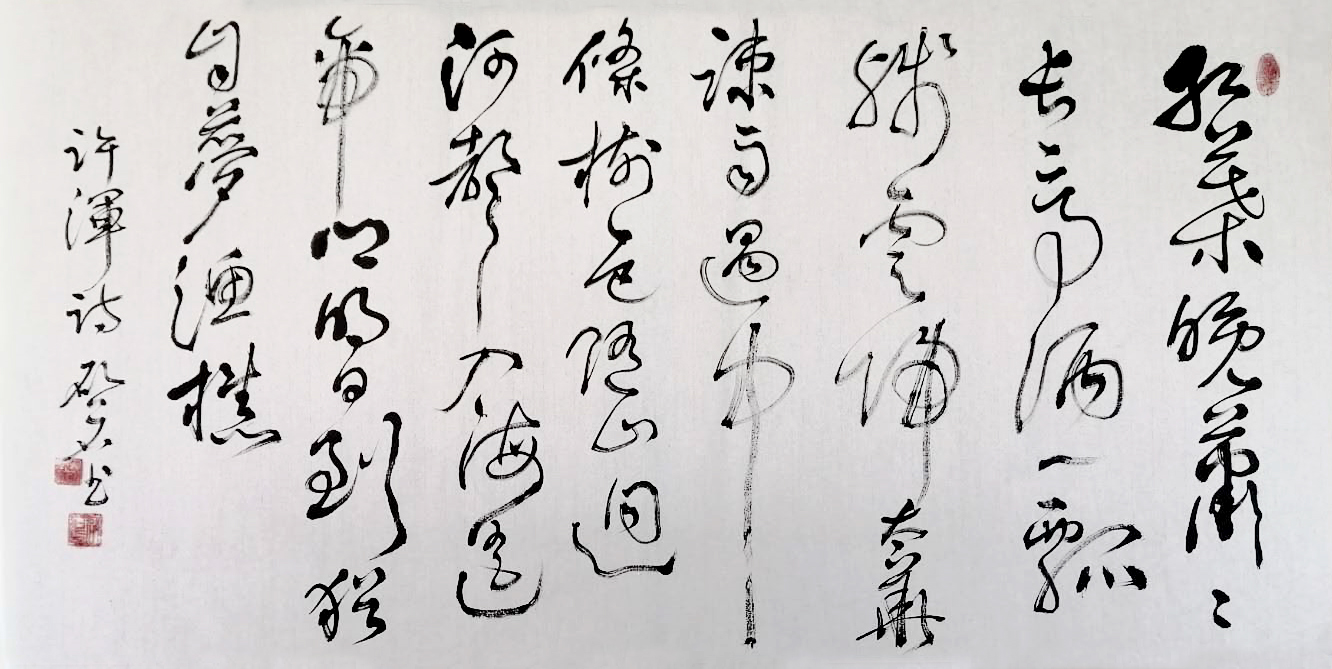 紅葉晚蕭〻
長亭酒一瓢
殘雲歸太華
疎雨過中
條樹色隨山迥
河聲入海遙
帝鄉明日到猶
自夢漁樵
許渾詩 书